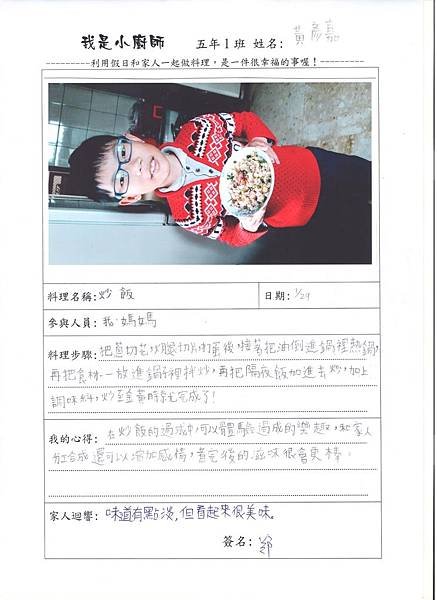 我是小廚師 五年1班 姓名: 黃彥嘉
---------利用假日和家人一起做料理，是一件很幸福的事喔！---------
料理名稱: 炒飯 日期: 1/29
參與人員: 我、媽媽
料理步驟: 把蔥切花,火腿切片,打蛋後,接著把油倒進鍋裡熱鍋,
再把食材一放進鍋子裡拌炒,再把隔夜飯加進去炒,加上
調味料,炒至金黃時就完成了!
我的心得: 在炒飯的過程中,可以體驗過成的樂趣,和家人
分工合成還可以增加感情,煮完後的滋味很會更棒。
家人迴響: 味道有點淡,但看起來很美味。
簽名: 鄭